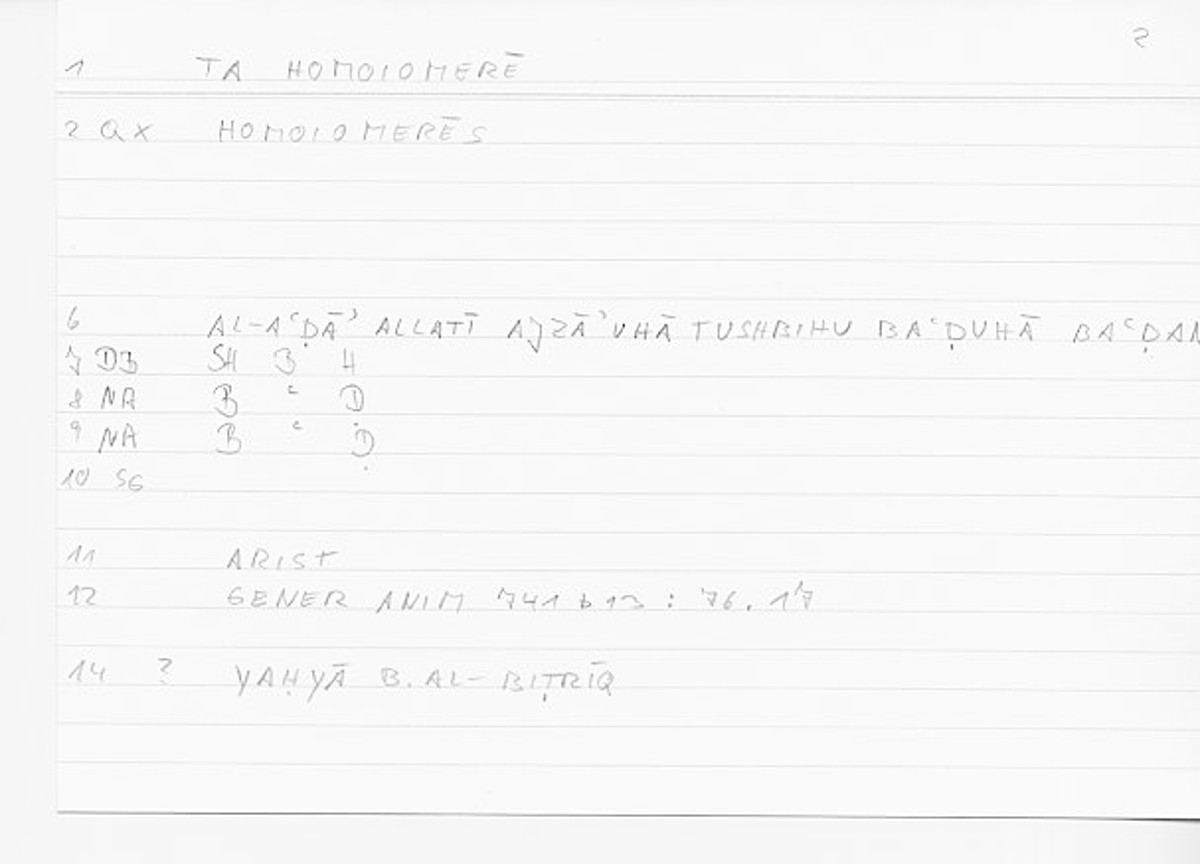 2
1 TA HOMOIOMERĒ
2 QX HOMOIOMERĒS
6 AL-AʿḌĀʾ ALLATĪ AJZĀʾUHĀ TUSHBIHU BAʿḌUHĀ BAʿḌAN
7 DB SH B H
8 NA B ʿ Ḍ
9 NA B ʿ Ḍ
10 SG
11 ARIST
12 GENER ANIM 741 b 13 : 76.17
14 ? YAḤYĀ B. AL-BIṬRĪQ